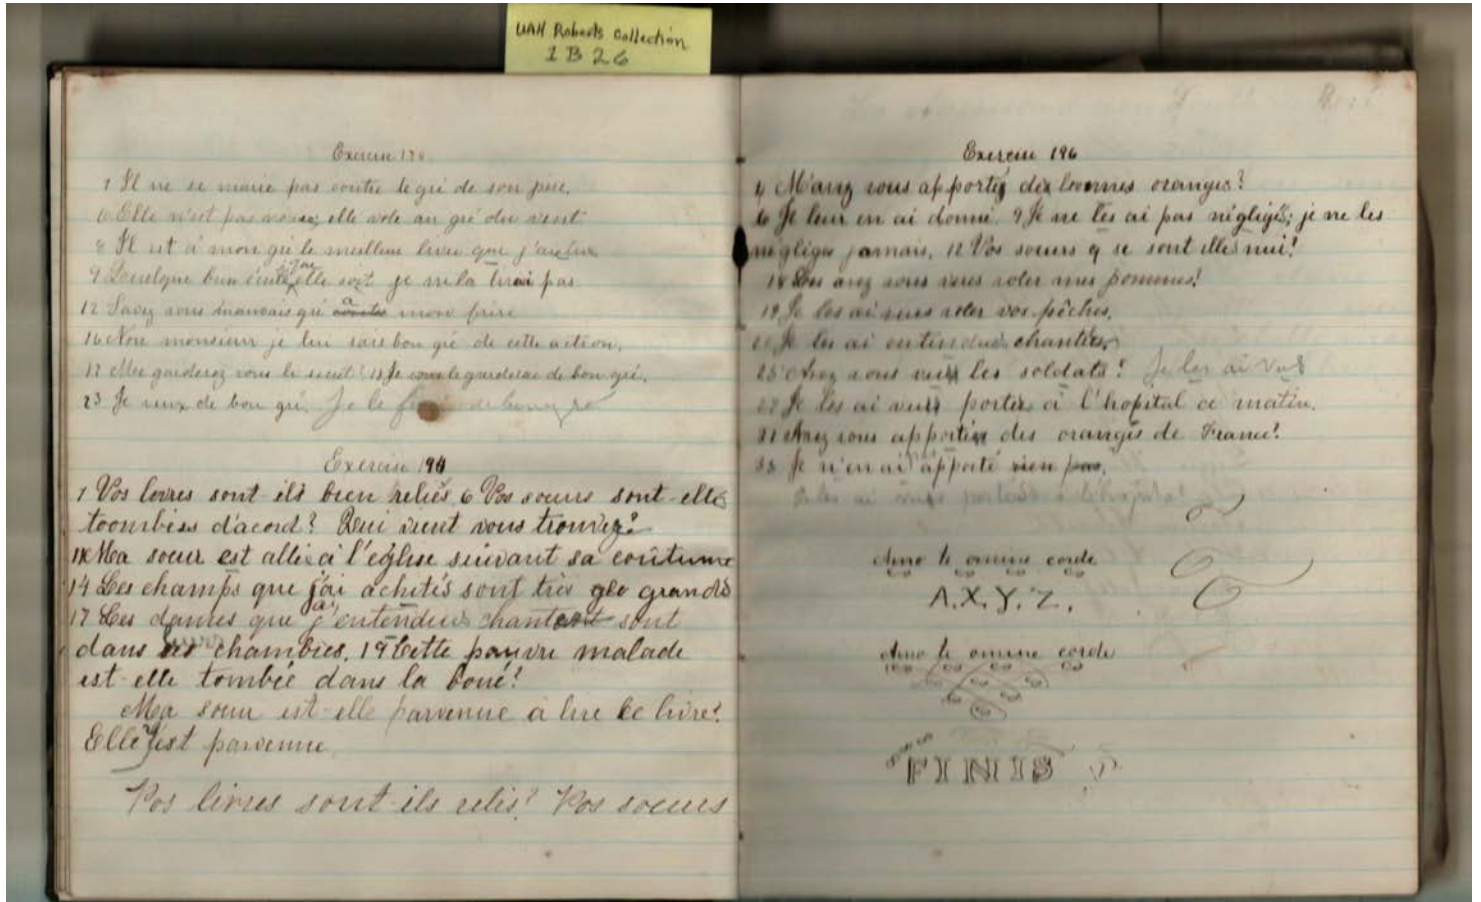 UAH Roberts Collection
1B26
Exercise
1 Il ne se marie pas contre le gré de son père.
6 Elle n'est pas elle vole au gré du vent
8 Il est à mon gré le meilleur livre que j'ai lu
9 Quelque bien écrite que elle soit je ne la lirai pas
12 Savez vous mauvais gré à mon frère
16 Non monsieur je lui sais bon gré de cette action.
17 Me garderez vous le secret? 18 Je le garderai de bon gré.
23 Je veux de bon gré. Je le de bon gré
Exercise 194
1 Vos livres sont ils bien reliés 6 Vos soeurs sont-elles
toombées d'acord? Qui vient vous trouvez?
Ma soeur est allée à l'église suivant sa coûtume
14 Les champs que j'ai achetés sont très glo grands
17 Les dames que j'ai entendues chanter sont
dans chambres. 19 Cette pauvre malade
est-elle tombée dans la boué?
Ma soeur est-elle parvenue à lire le livre?
Elle y est parvenue
Vos livres sont-ils relis? Vos soeurs
Exercise 196
4 M'avez vous apportés des bonnes oranges?
6 Je leur en ai donné. 9 Je ne les ai pas négligés; je ne les
néglige jamais. 12 Vos soeurs y se sont elles nui?
18 Les avez vous vues voler mes pommes?
19 Je les ai vues voler vos pêches.
Je les ai entendus chanter
25 Avez vous vus les soldats? Je les ai vus
27 Je les ai vus porter à l'hopital ce matin.
31 Avez vous apporté des oranges de France?
33 Je n'en ai apporté rien pas.
Je les ai vus porter à l'hopital
Amo te omine corde
A. X. Y. Z.
Amo te omine corde
FINIS